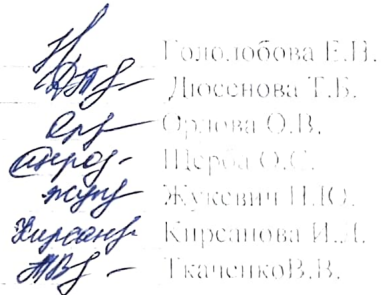 Гололобова Е.В.
Дюсенова Т.Б.
Орлова О.В.
Щерба О.С.
Жукевич Н.Ю.
Кирсанова И.А.
ТкаченкоВ.В.